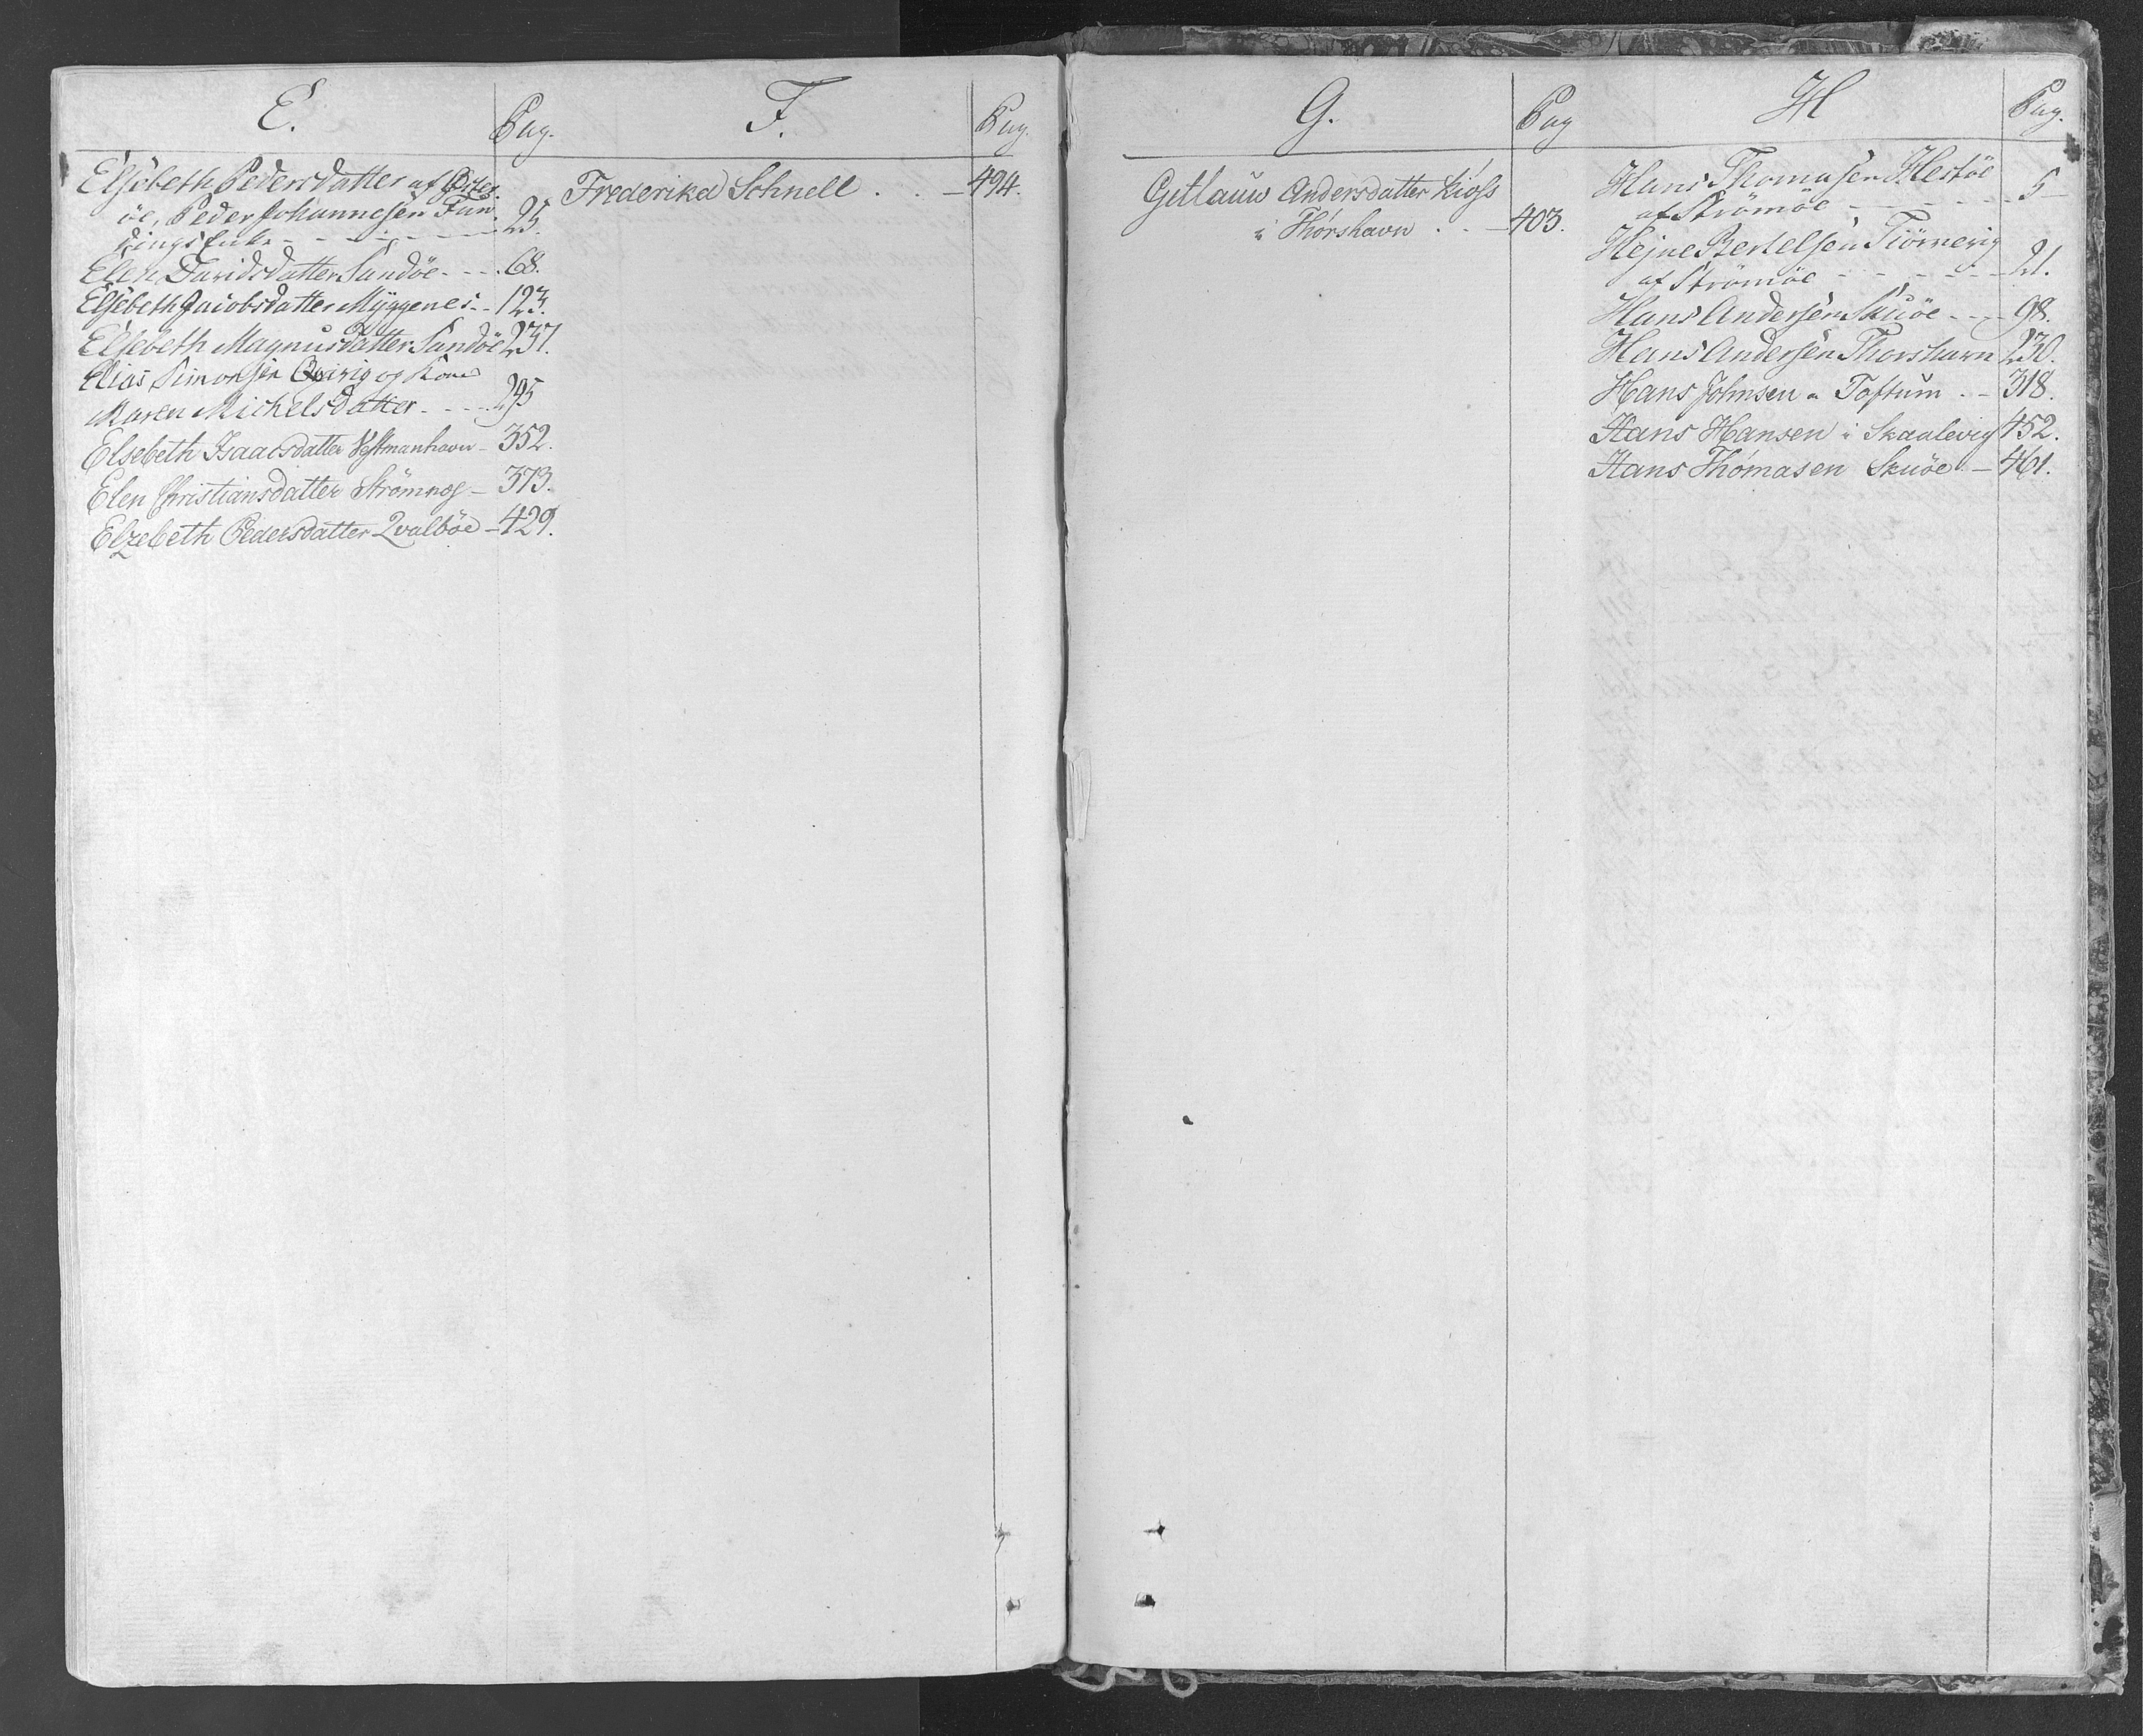 E.
Pag.
Elsebeth Pedersdatter af Öster-
öe, Peder Johannesen Fun-
dings Enke - - - - - 25.
Elen Davidsdatter Sandöe - - - 68.
Elsebeth Jacobsdatter Myggenes - - 123.
Elsebeth Magnusdatter Sandöe 237.
Elias Simonsen Qvivig og Kone
Maren Michelsdatter - - - - 295
Elsebeth Isaacsdatter Vestmanhavn - 352.
Elen Christiansdatter Strømnæs - 373.
Elzebeth Pedersdatter Qvalböe - 429.
F.
Pag.
Frederika Schnell . . - 494.
G.
Pag
Getlauw Andersdatter Kioss
i Thórshavn . . - 403.
H
Pag.
Hans Thomasen Hestöe
af Strömöe - - - - - - 5
Hejne Bertelsen Tiörnevig
af Strömöe - - - - - - 21.
Hans Andersen Skuöe - - - 98.
Hans Andersen Thorshavn 230.
Hans Johnsen a Toftum . - 318.
Hans Hansen i Skaalevig 452.
Hans Thómasen Skuöe - 461.